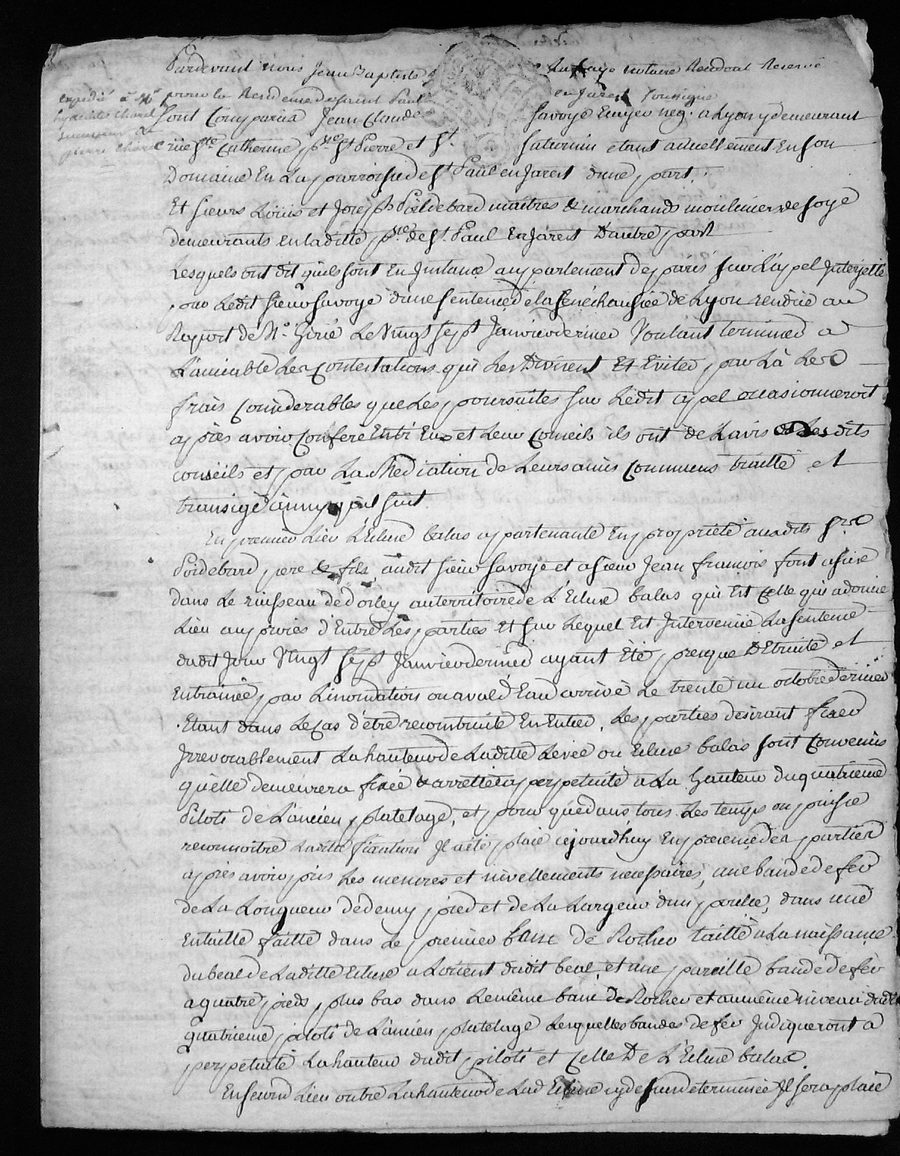 Pardevant nous Jean Baptiste Lahaye notaire Reserve
pour la Residence de Saint Paul en Jarest soussigné
expedié à Mr
sont Comparus Jean Claude Savoye Ecuyer neg. a Lyon y demeurant
rue Ste Catherine psse St Pierre et St Saturnin etant actuellement En son
Domaine En La parroisse de St Paul en Jarest d'une part.
Et sieurs Louis et Joseph Poidebard maitres & marchands mouliniers de soye
demeurants en laditte psse de St Paul En Jarest D'autre part
Lesquels ont dit quils sont En Instance au parlement de paris sur L'apel Interjetté
par Ledit sieur Savoye d'une sentence de la senéchaussée de Lyon rendüe au
Raport de Mr Girié Le Vingt sept Janvier dernier Voulant terminer a
L'amiable Les Contestations qui Les Divisent Et Eviter par Là Les
frais Considerables que Les poursuites sur Ledit apel occasionneroit
après avoir Conferé Entr'Eux et Leur Conseils ils ont de Lavis des dits
conseils et par La Mediation de Leurs amis Communs traitté et
transigé ainsy qu'il suit
En premier Lieu L'Ecluse balas apartenante En propriété auxdits Srs
Poidebard pere & fils, audit sieur Savoye et a sieur Jean francois fort assise
dans Le ruisseau de dorley au territoire de L'Ecluse balas qui Est Celle qui a donné
Lieu au procès d'Entre Les parties Et sur Lequel Est Intervenüe La sentence
dudit jour Vingt sept Janvier dernier ayant Eté presque Détruite et
Entrainée par L'inondation ou aval d'Eau arrivé Le trente un octobre dernier
Etant dans Le Cas d'être reconstruite En Entier, Les parties desirant fixer
Irrevocablement La hauteur de Laditte Levée ou Ecluse balas sont Convenus
qu'elle demeurera fixée & arrettée a perpetuité a La hauteur du quatrieme
Pilots de L'ancien platelage, et pour que dans tous Les temps on puisse
reconnoitre Laditte fixation Il a eté placé cejourdhuy En presence des parties
après avoir pris Les mesures et nivellements necessaires, une bande de fer
de La Longueur de demy pied et de La Largeur d'un pouce, dans une
Entaille faitte dans Le premier banc de Rocher taillé a La naissance
du beal de Laditte Ecluse a Lorient dudit beal, et une pareille bande de fer
a quatre pieds plus bas dans Le même banc de Rocher et au même niveau dudit
quatrieme pilots de L'ancien platelage Lesquelles bandes de fer Indiqueront a
perpetuité La hauteur dudit pilots et Celle De L'Ecluse balas
En second Lieu outre La hauteur de Lad Ecluse cy dessus determinée Il sera placé